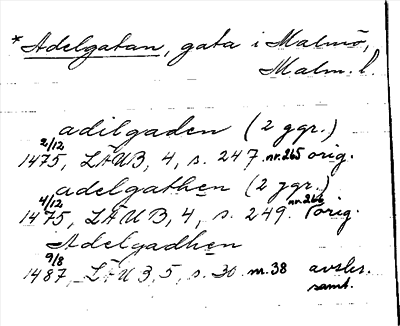 * Adelgatan, gata i Malmö,
Malm. l.
adilgaden (2 ggr.)
2/12
1475, LÄUB, 4, s. 247. nr. 265 orig.
adelgathen (2 ggr.)
4/12
1475, LÄUB, 4, s. 249. nr. 266 orig.
Adelgadhen
9/8
1487, LÄUB, 5, s. 30. nr. 38 avskr.
samt.